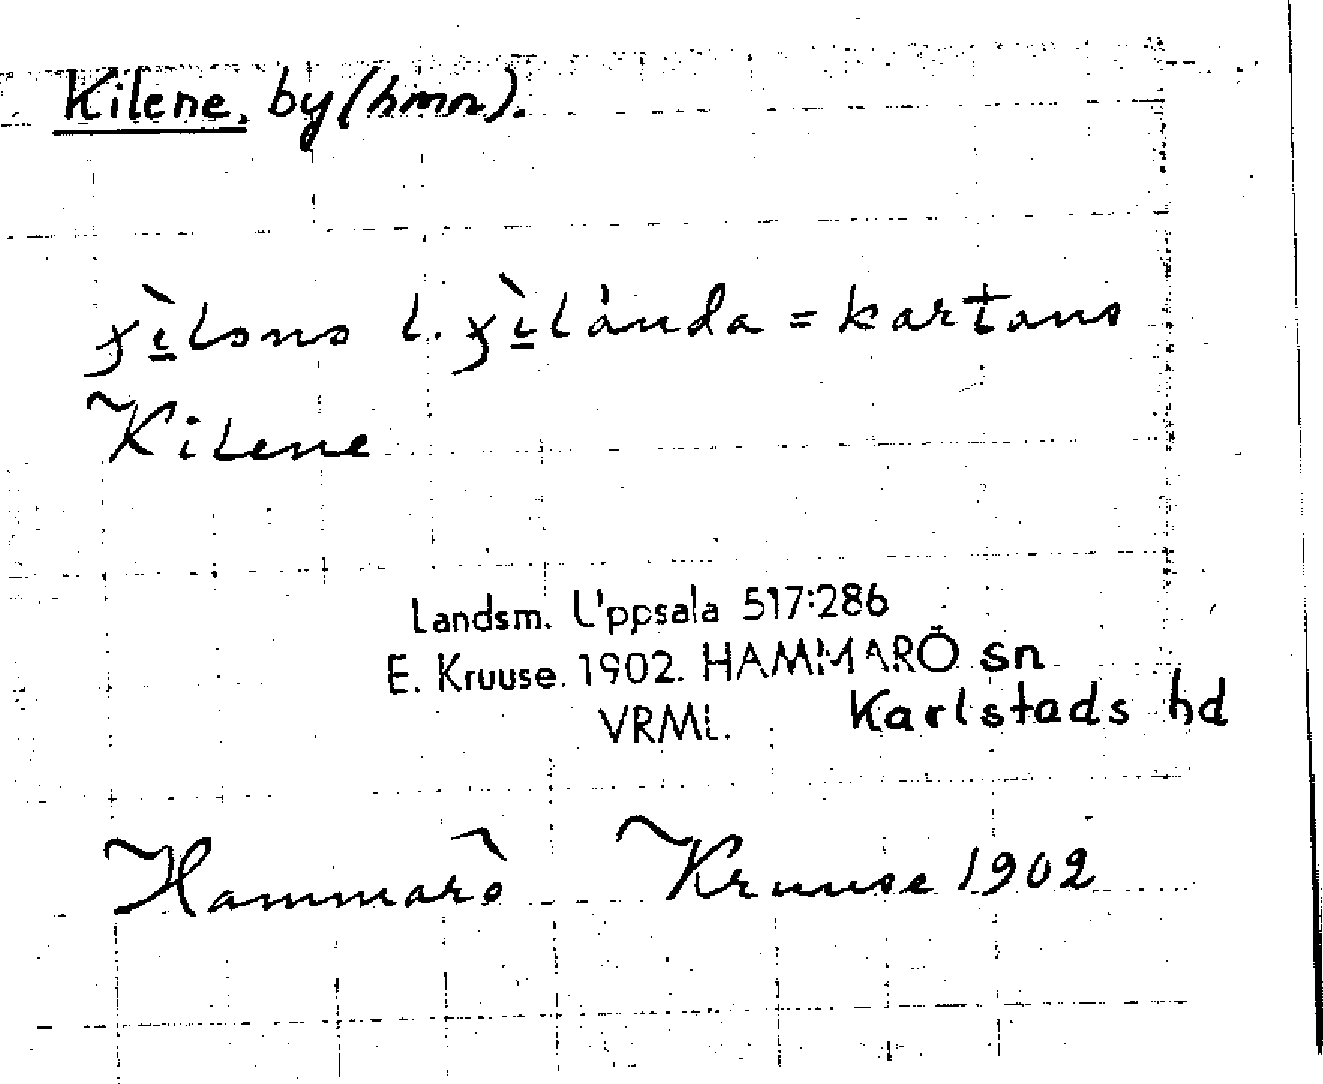 Kilene, by (hmn).
kartans
Kilene
Landsm. Uppsala 517:286
E. Kruuse. 1902. HAMMARÖ sn
VRML. Karlstads hd
Hammarö Kruuse 1902